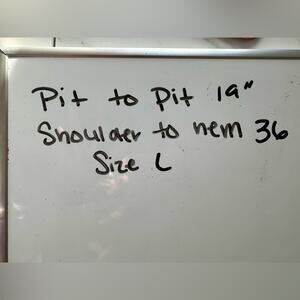 Pit to Pit 19"
Shoulder to hem 36
Size L